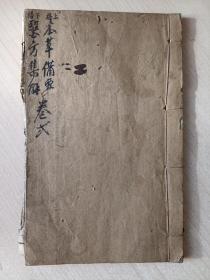 本草備要
醫方集解
卷弍